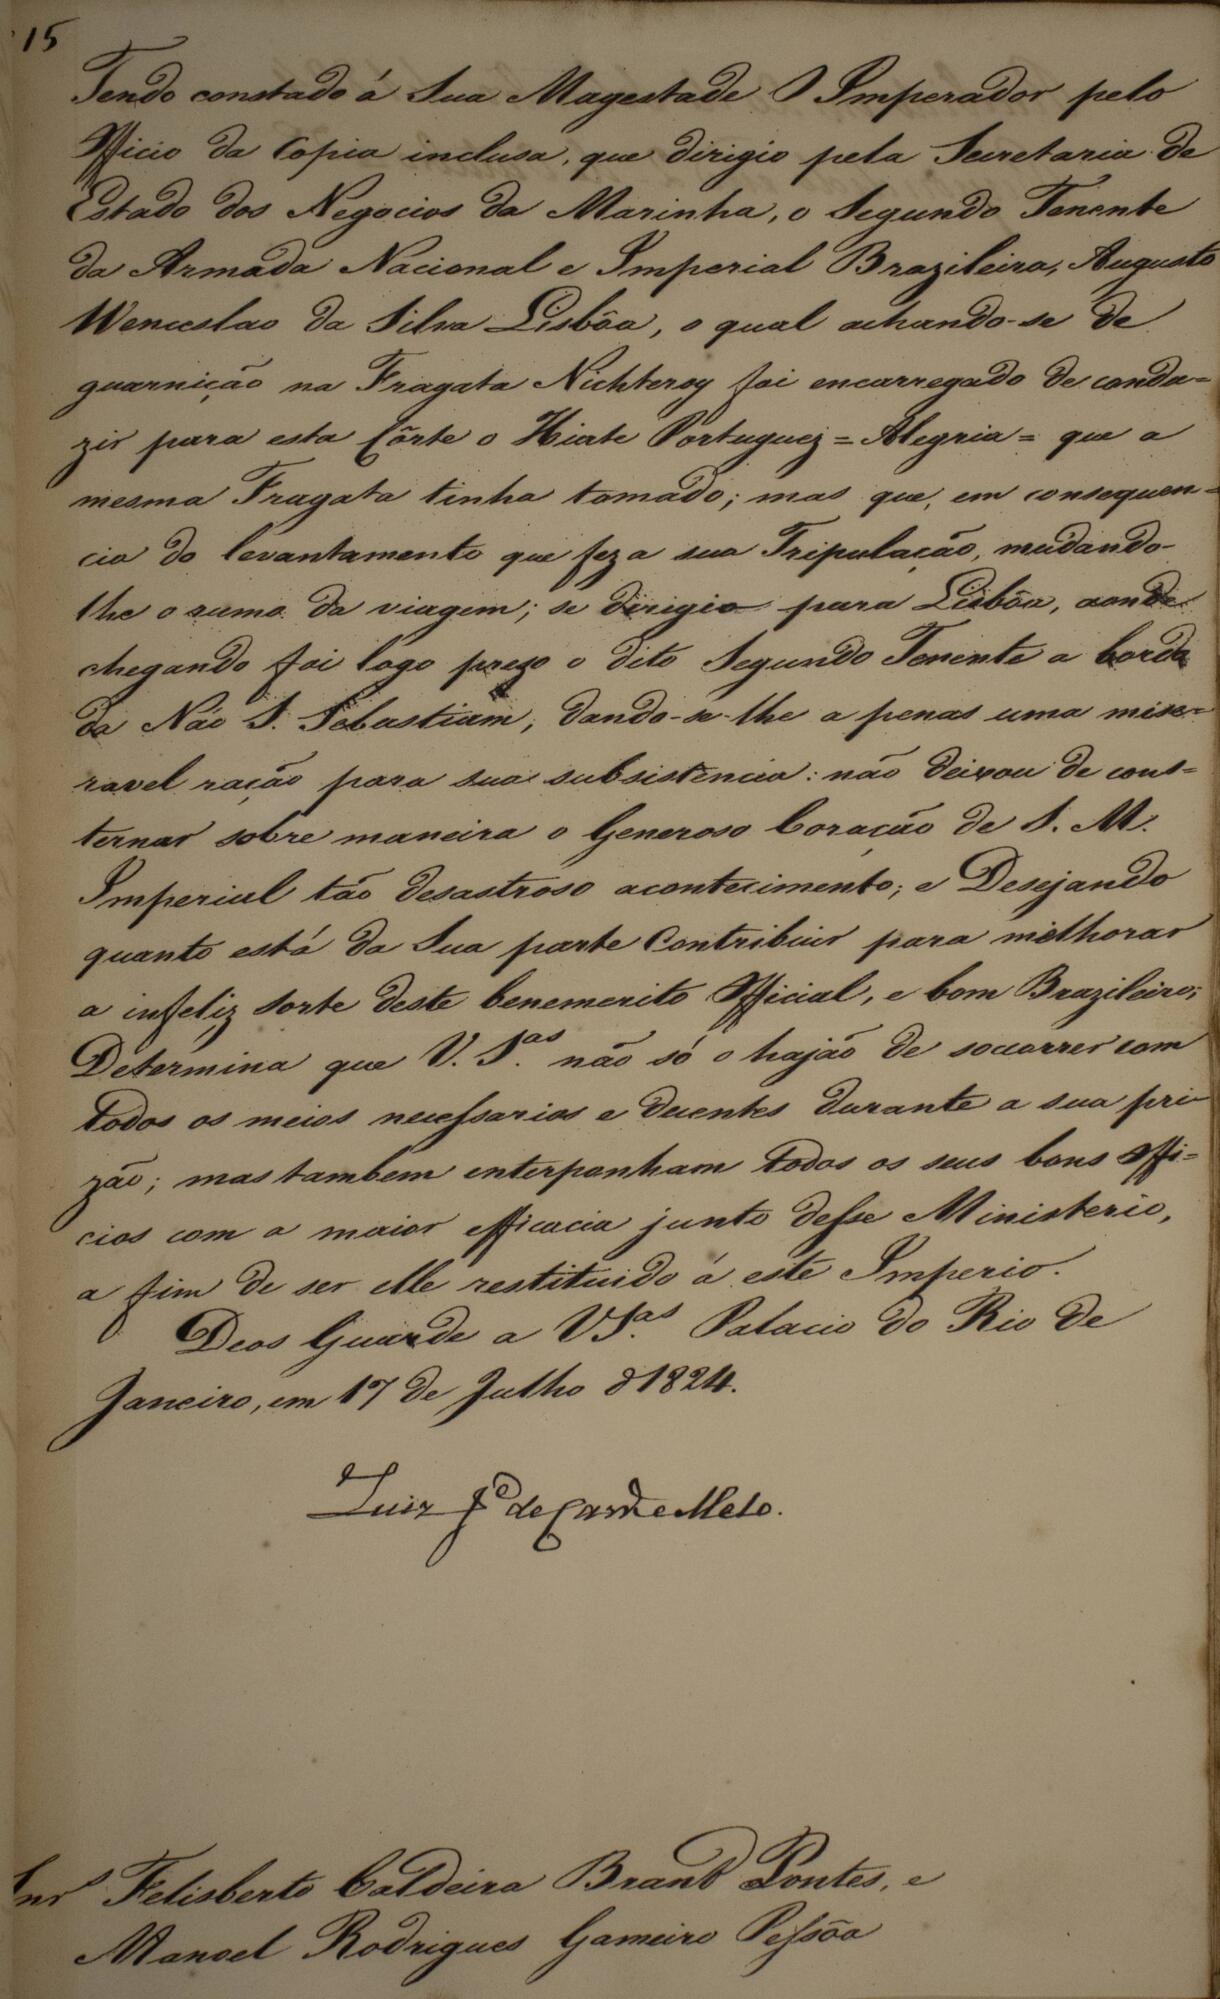 15
Tendo constado á Sua Magestade O Imperador pelo
Officio da Copia inclusa, que dirigio pela Secretaria de
Estado dos Negocios da Marinha, o Segundo Tenente
da Armada Nacional e Imperial Brazileira, Augusto
Wenceslao da Silva Lisbôa, o qual achando-se de
guarnição na Fragata Nichteroy foi encarregado de condu=
zir para esta Côrte o Hiate Portuguez = Alegria = que a
mesma Fragata tinha tomado; mas que, em consequen=
cia do levantamento que fez a sua Tripulação, mudando-
lhe o rumo da viagem; se dirigio para Lisbôa, aonde
chegando foi logo prezo o dito Segundo Tenente a bordo
da Náo S. Sebastiam, dando-se-lhe a penas uma mise=
ravel ração para sua subsistencia: não deixou de cons=
ternar sobre maneira o Generoso Coração de S. M.
Imperial tão desastroso acontecimento; e Desejando
quanto está da Sua parte Contribuir para melhorar
a infeliz sorte deste benemerito Official, e bom Brazileiro;
Determina que V. S.as não só o hajão de soccorrer com
todos os meios necessarios e decentes durante a sua pri-
zão; mas tambem interponham todos os seus bons offi=
cios com a maior efficacia junto desse Ministerio,
a fim de ser elle restituido á este Imperio.
Deos Guarde a V S.as Palacio do Rio de
Janeiro, em 17 de Julho d 1824.
Luiz Je de Carvo e Mello.
Snrs Felisberto Caldeira Brant Pontes, e
Manoel Rodrigues Gameiro Pessôa